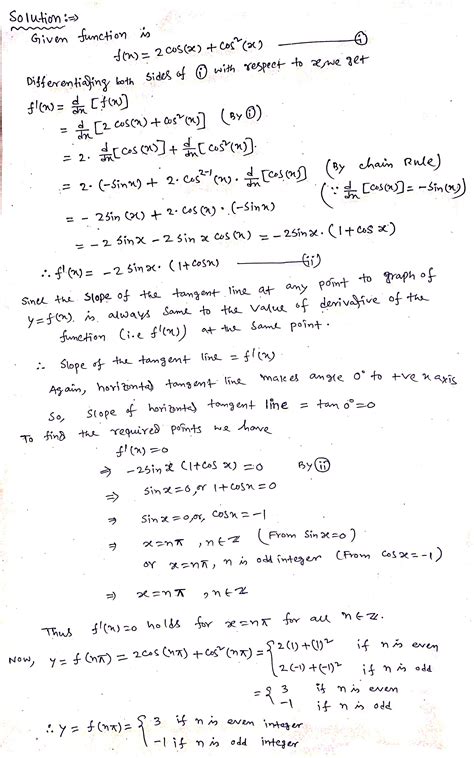 Solution:⇒
Given function is
f(x) = 2cos(x) + cos²(x) ——— (i)
Differentiating both sides of (i) with respect to x, we get
f'(x) = d/dx [f(x)]
= d/dx [2 cos(x) + cos²(x)] (By (i))
= 2. d/dx [cos(x)] + d/dx [cos²(x)].
= 2. (-sinx) + 2. cos²⁻¹(x). d/dx [cos(x)] (By chain Rule)
(∵ d/dx [cos(x)] = -sin(x))
= - 2sin(x) + 2. cos(x). (-sinx)
= -2 sinx - 2 sin x cos(x) = -2sinx. (1+cos x)
∴ f'(x) = -2 sinx. (1+cosx) ——— (ii)
Since the slope of the tangent line at any point to graph of
y=f(x), is always same to the value of derivative of the
function (i.e f'(x)) at the same point.
∴ slope of the tangent line = f'(x)
Again, horizontal tangent line makes angle 0° to +ve x axis
So, slope of horizontal tangent line = tan 0° = 0
To find the required points we have
f'(x) = 0
⇒ -2sin x (1+cos x) = 0 By (ii)
⇒ sinx = 0, or 1+cosx = 0
⇒ sinx = 0, or, cosx = -1
⇒ x = nπ, n∈ℤ (From sinx=0)
or x = nπ, n is odd integer (From cosx = -1)
⇒ x = nπ, n∈ℤ
Thus f'(x)=0 holds for x=nπ for all n∈ℤ.
Now, y = f(nπ) = 2cos(nπ) + cos²(nπ) = { 2(1) + (1)² if n is even
2(-1) + (-1)² if n is odd
= { 3 if n is even
-1 if n is odd
∴ y = f(nπ) = { 3 if n is even integer
-1 if n is odd integer